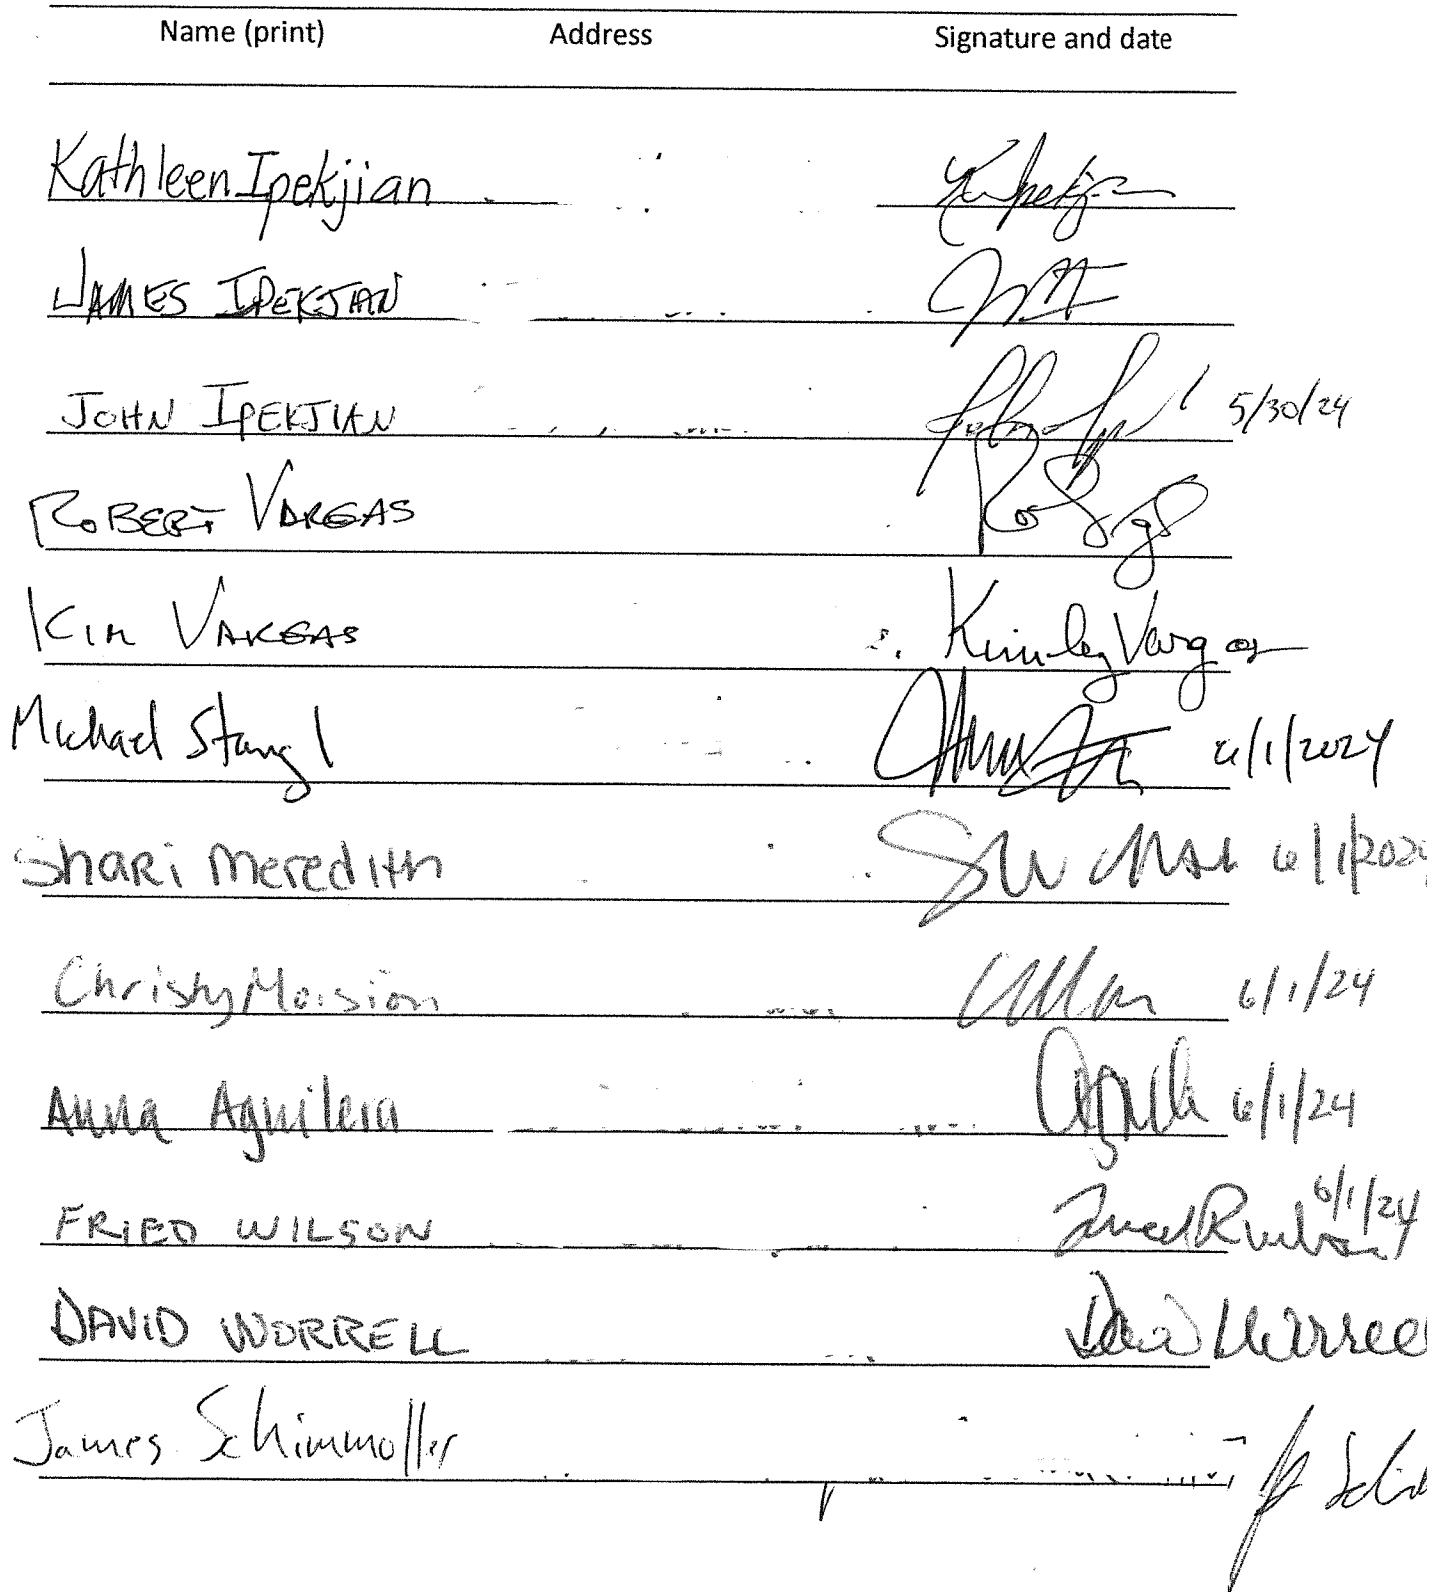 Name (print) Address Signature and date
Kathleen Ipekjian
JAMES IPEKJIAN
JOHN IPEKJIAN 5/30/24
ROBERT VARGAS
KIM VARGAS Kimberley Vargas
Michael Stangl 6/1/2024
Shari Meredith 6/1/2024
Christy Moision 6/1/24
Anna Aguilera 6/1/24
FRIED WILSON 6/1/24
DAVID WORRELL David Worrell
James Schimmoller